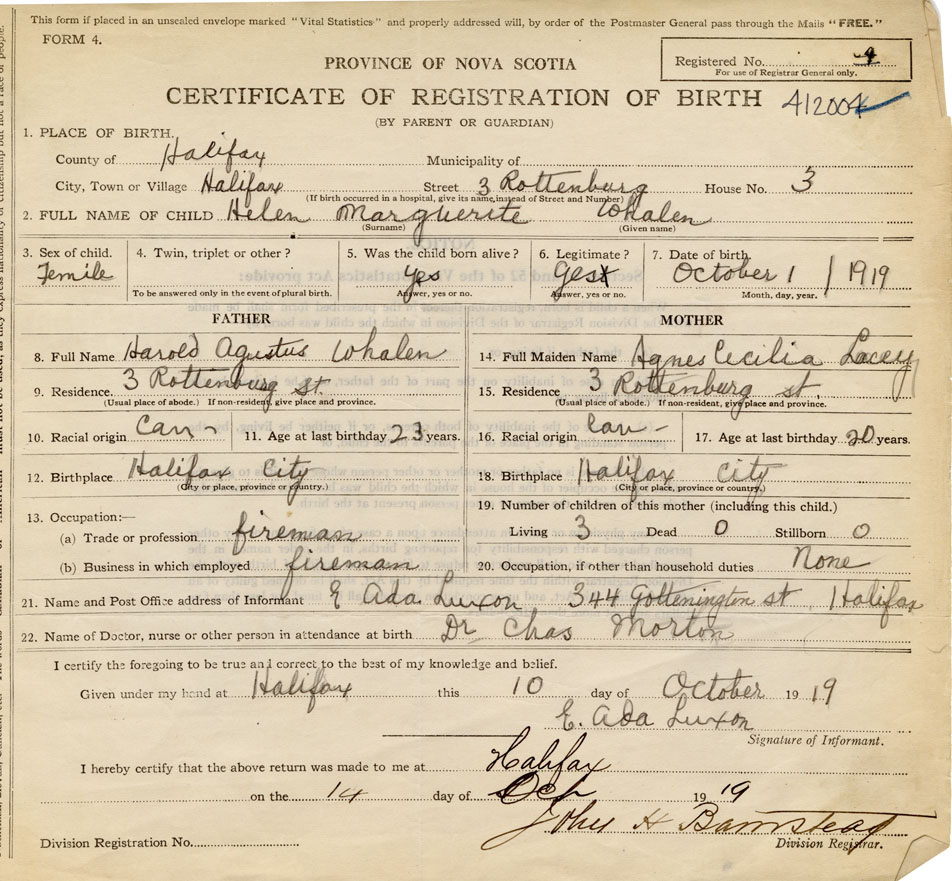 This form if placed in an unsealed envelope marked "Vital Statistics" and properly addressed will, by order of the Postmaster General pass through the Mails "FREE."
FORM 4.
Registered No. 4
For use of Registrar General only.
PROVINCE OF NOVA SCOTIA
CERTIFICATE OF REGISTRATION OF BIRTH 412004
(BY PARENT OR GUARDIAN)
1. PLACE OF BIRTH.
County of Halifax Municipality of
City, Town or Village Halifax Street 3 Rottenburg House No. 3
(If birth occurred in a hospital, give its name, instead of Street and Number)
2. FULL NAME OF CHILD Helen Marguerite Whalen
(Surname) (Given name)
3. Sex of child. 4. Twin, triplet or other? 5. Was the child born alive? 6. Legitimate? 7. Date of birth.
Femile yes yes October 1 / 1919
To be answered only in the event of plural birth. Answer, yes or no. Answer, yes or no. Month, day, year.
FATHER MOTHER
8. Full Name Harold Agustus Whalen 14. Full Maiden Name Agnes Cecilia Lacey
9. Residence. 3 Rottenburg st. 15. Residence 3 Rottenburg st.
(Usual place of abode.) If non-resident, give place and province. (Usual place of abode.) If non-resident, give place and province.
10. Racial origin Can - 11. Age at last birthday 23 years. 16. Racial origin Can - 17. Age at last birthday 20 years.
12. Birthplace Halifax City 18. Birthplace Halifax City
(City or place, province or country.) (City or place, province or country.)
13. Occupation:— 19. Number of children of this mother (including this child.)
(a) Trade or profession. fireman Living 3 Dead 0 Stillborn 0
(b) Business in which employed fireman 20. Occupation, if other than household duties None
21. Name and Post Office address of Informant E Ada Luxon 344 Gottenington st Halifax
22. Name of Doctor, nurse or other person in attendance at birth Dr Chas Morton
I certify the foregoing to be true and correct to the best of my knowledge and belief.
Given under my hand at Halifax this 10 day of October 1919
E. Ada Luxon
Signature of Informant.
I hereby certify that the above return was made to me at Halifax
on the 14 day of Oct 1919
John H Barnstead
Division Registration No. Division Registrar.